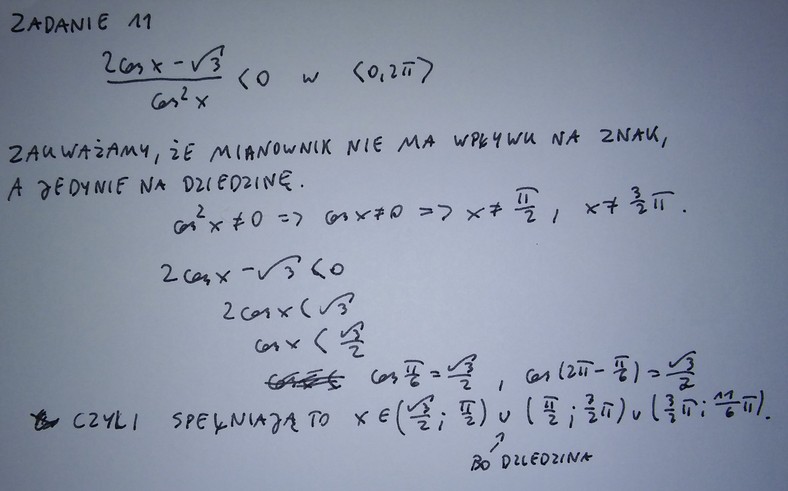 ZADANIE 11
(2cos x - √3)/(cos² x) < 0 w <0, 2π>
ZAUWAŻAMY, ŻE MIANOWNIK NIE MA WPŁYWU NA ZNAK,
A JEDYNIE NA DZIEDZINĘ.
cos² x ≠ 0 => cos x ≠ 0 => x ≠ π/2, x ≠ 3/2 π.
2 cos x - √3 < 0
2 cos x < √3
cos x < √3/2
cos π/6 = √3/2, cos (2π - π/6) = √3/2
CZYLI SPEŁNIAJĄ TO x ∈ (√3/2; π/2) ∪ (π/2; 3/2 π) ∪ (3/2 π; 11/6 π).
BO DZIEDZINA